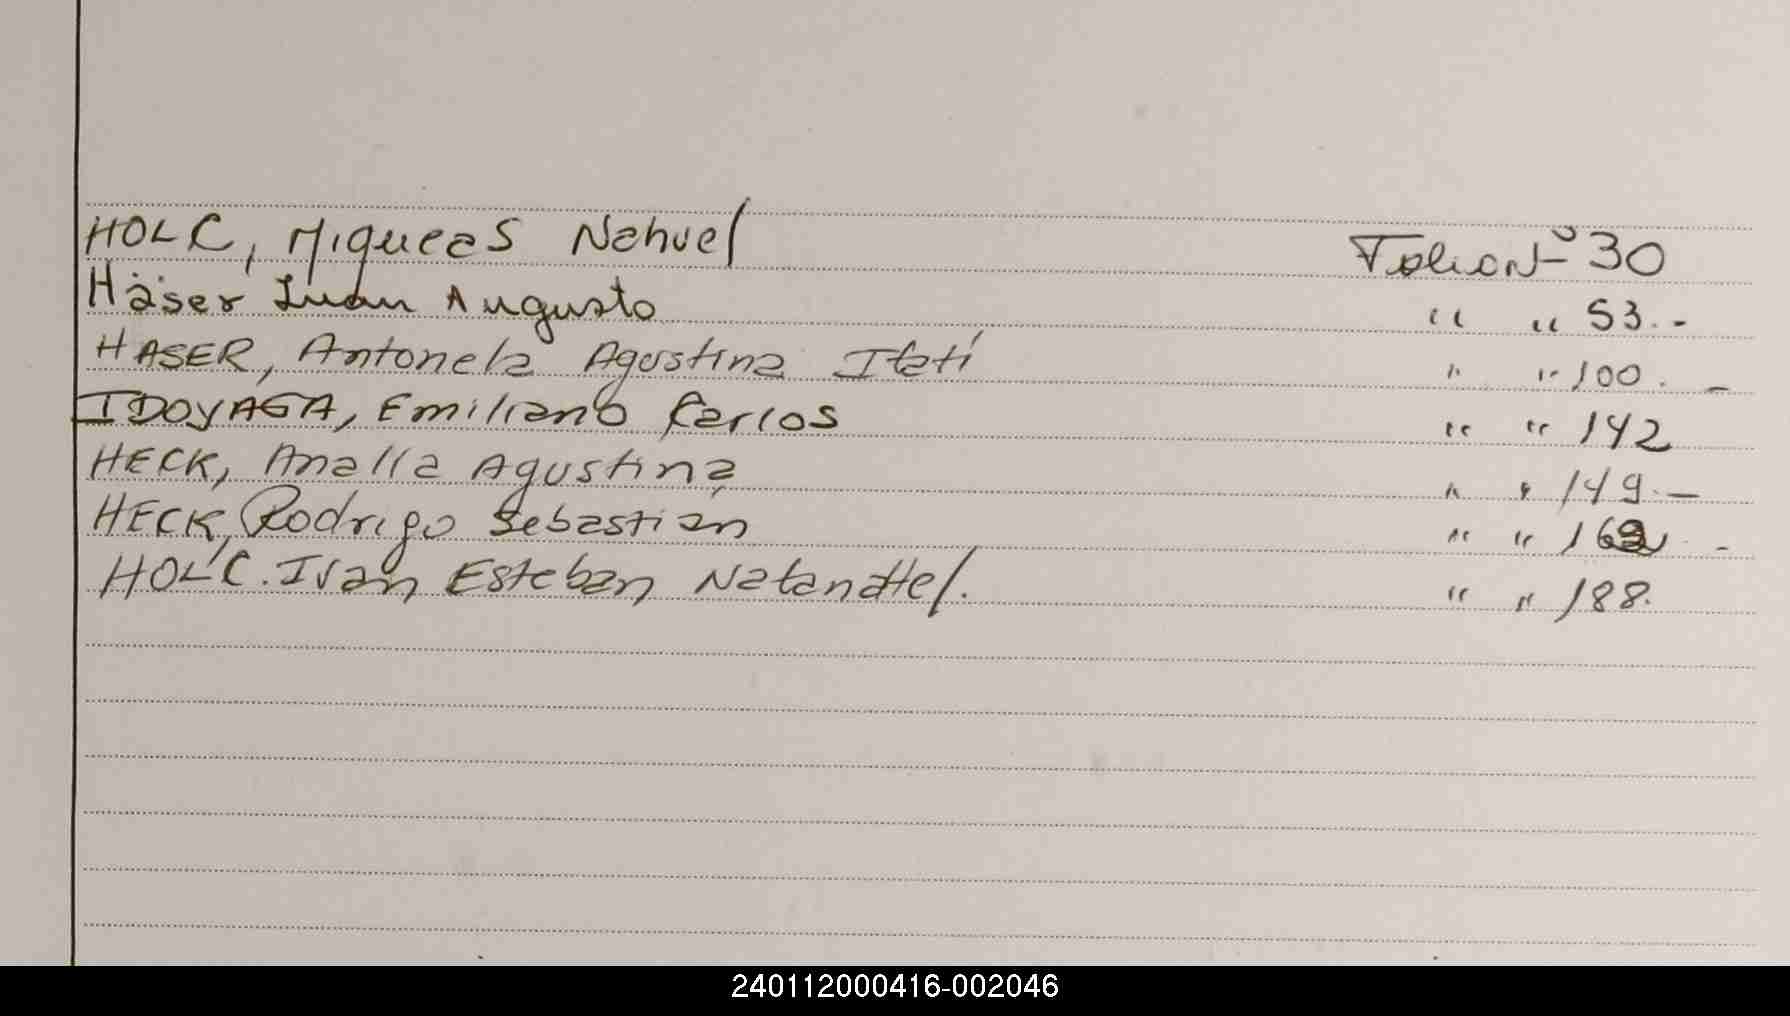 HOLC, Miqueas Nahuel Folio Nº 30
Häser Juan Augusto " " 53.-
HASER, Antonela Agustina Itatí " " 100. -
IDOYAGA, Emiliano Carlos " " 142
HECK, Analía Agustina " " 149.-
HECK, Rodrigo Sebastian " " -
HOLC. Ivan Esteban Natanael. " " 188.
240112000416-002046